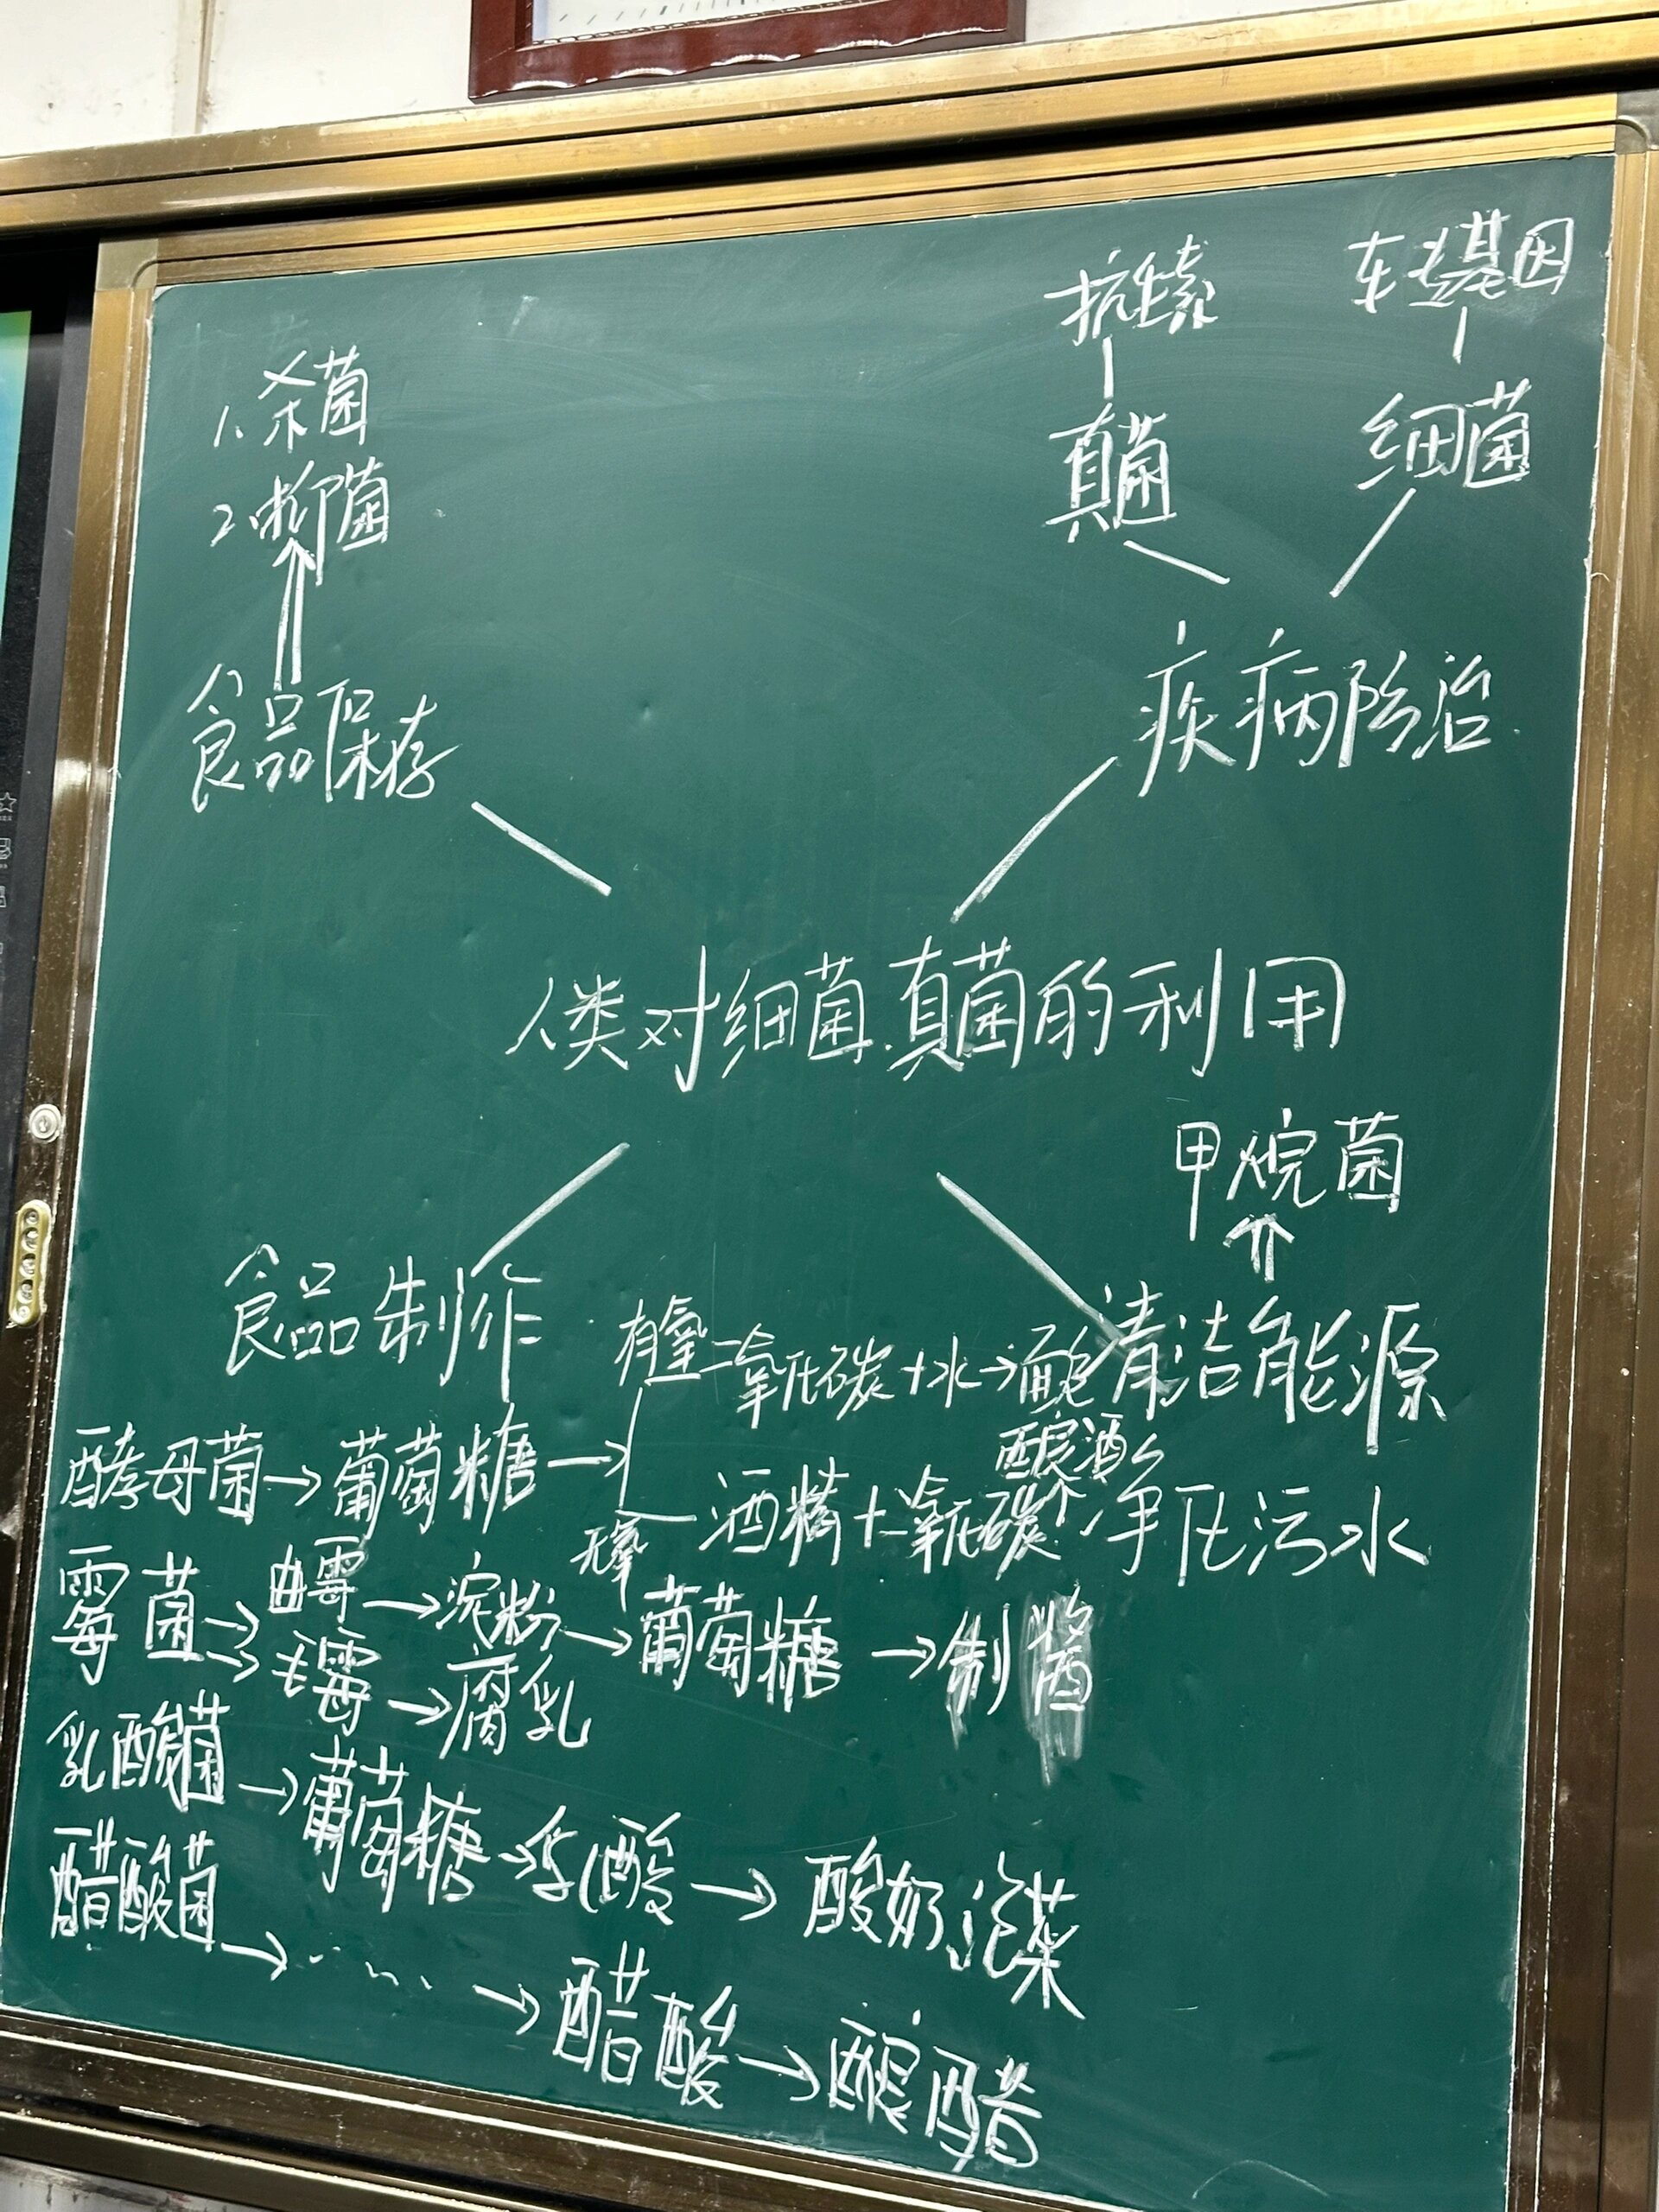 抗生素 转基因
1. 杀菌
真菌 细菌
2 抑菌
食品保存
疾病防治
人类对细菌、真菌的利用
甲烷菌
食品制作
清洁能源
有氧 二氧化碳+水→面包
酵母菌→葡萄糖→
酿酒
无氧 酒精+二氧化碳↑
净化污水
霉菌→曲霉→淀粉→葡萄糖→制酱
→毛霉→腐乳
乳酸菌→葡萄糖→乳酸→酸奶泡菜
醋酸菌→……→醋酸→酿醋